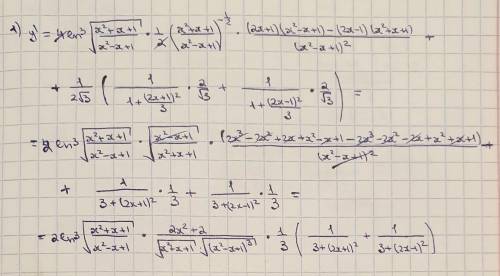 2) y' = 4 ln³ √((x²+x+1)/(x²-x+1)) · 1/2 ((x²+x+1)/(x²-x+1))^(-1/2) · ((2x+1)(x²-x+1) - (2x-1)(x²+x+1))/(x²-x+1)² +
+ 1/(2√3) ( 1/(1+(2x+1)²/3) · 2/√3 + 1/(1+(2x-1)²/3) · 2/√3 ) =
= 2 ln³ √((x²+x+1)/(x²-x+1)) · √((x²-x+1)/(x²+x+1)) · (2x³-2x²+2x+x²-x+1-2x³-2x²-2x+x²+x+1)/(x²-x+1)² +
+ 1/(3+(2x+1)²) · 1/3 + 1/(3+(2x-1)²) · 1/3 =
= 2 ln³ √((x²+x+1)/(x²-x+1)) · (2x²+2)/(√(x²-x+1) √((x²-x+1)³)) · 1/3 ( 1/(3+(2x+1)²) + 1/(3+(2x-1)²) )